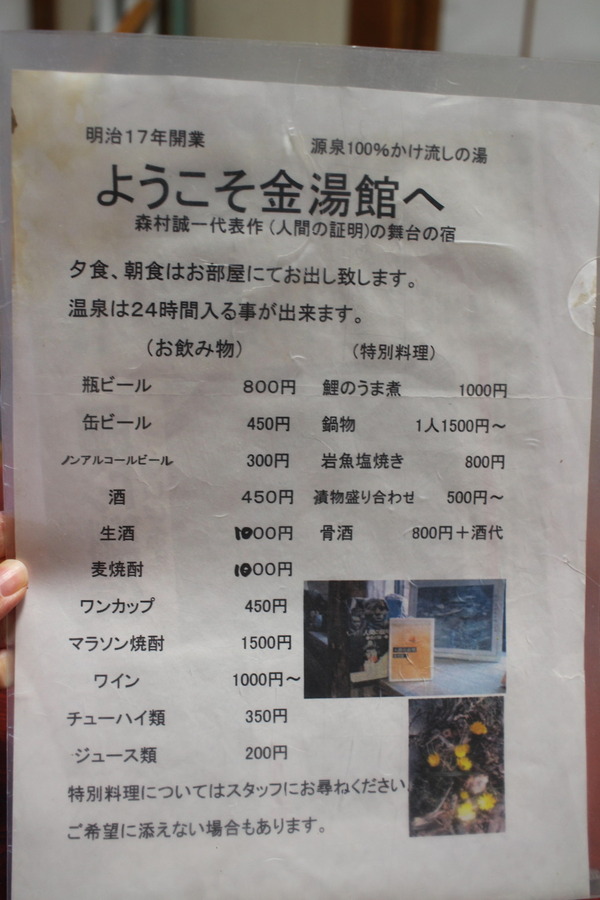 明治17年開業
源泉100%かけ流しの湯
ようこそ金湯館へ
森村誠一代表作(人間の証明)の舞台の宿
夕食、朝食はお部屋にてお出し致します。
温泉は24時間入る事が出来ます。
(お飲み物) (特別料理)
瓶ビール 800円 鯉のうま煮 1000円
缶ビール 450円 鍋物 1人1500円～
ノンアルコールビール 300円 岩魚塩焼き 800円
酒 450円 漬物盛り合わせ 500円～
生酒 1000円 骨酒 800円＋酒代
麦焼酎 1000円
ワンカップ 450円
マラソン焼酎 1500円
ワイン 1000円～
チューハイ類 350円
ジュース類 200円
特別料理についてはスタッフにお尋ねください
ご希望に添えない場合もあります。